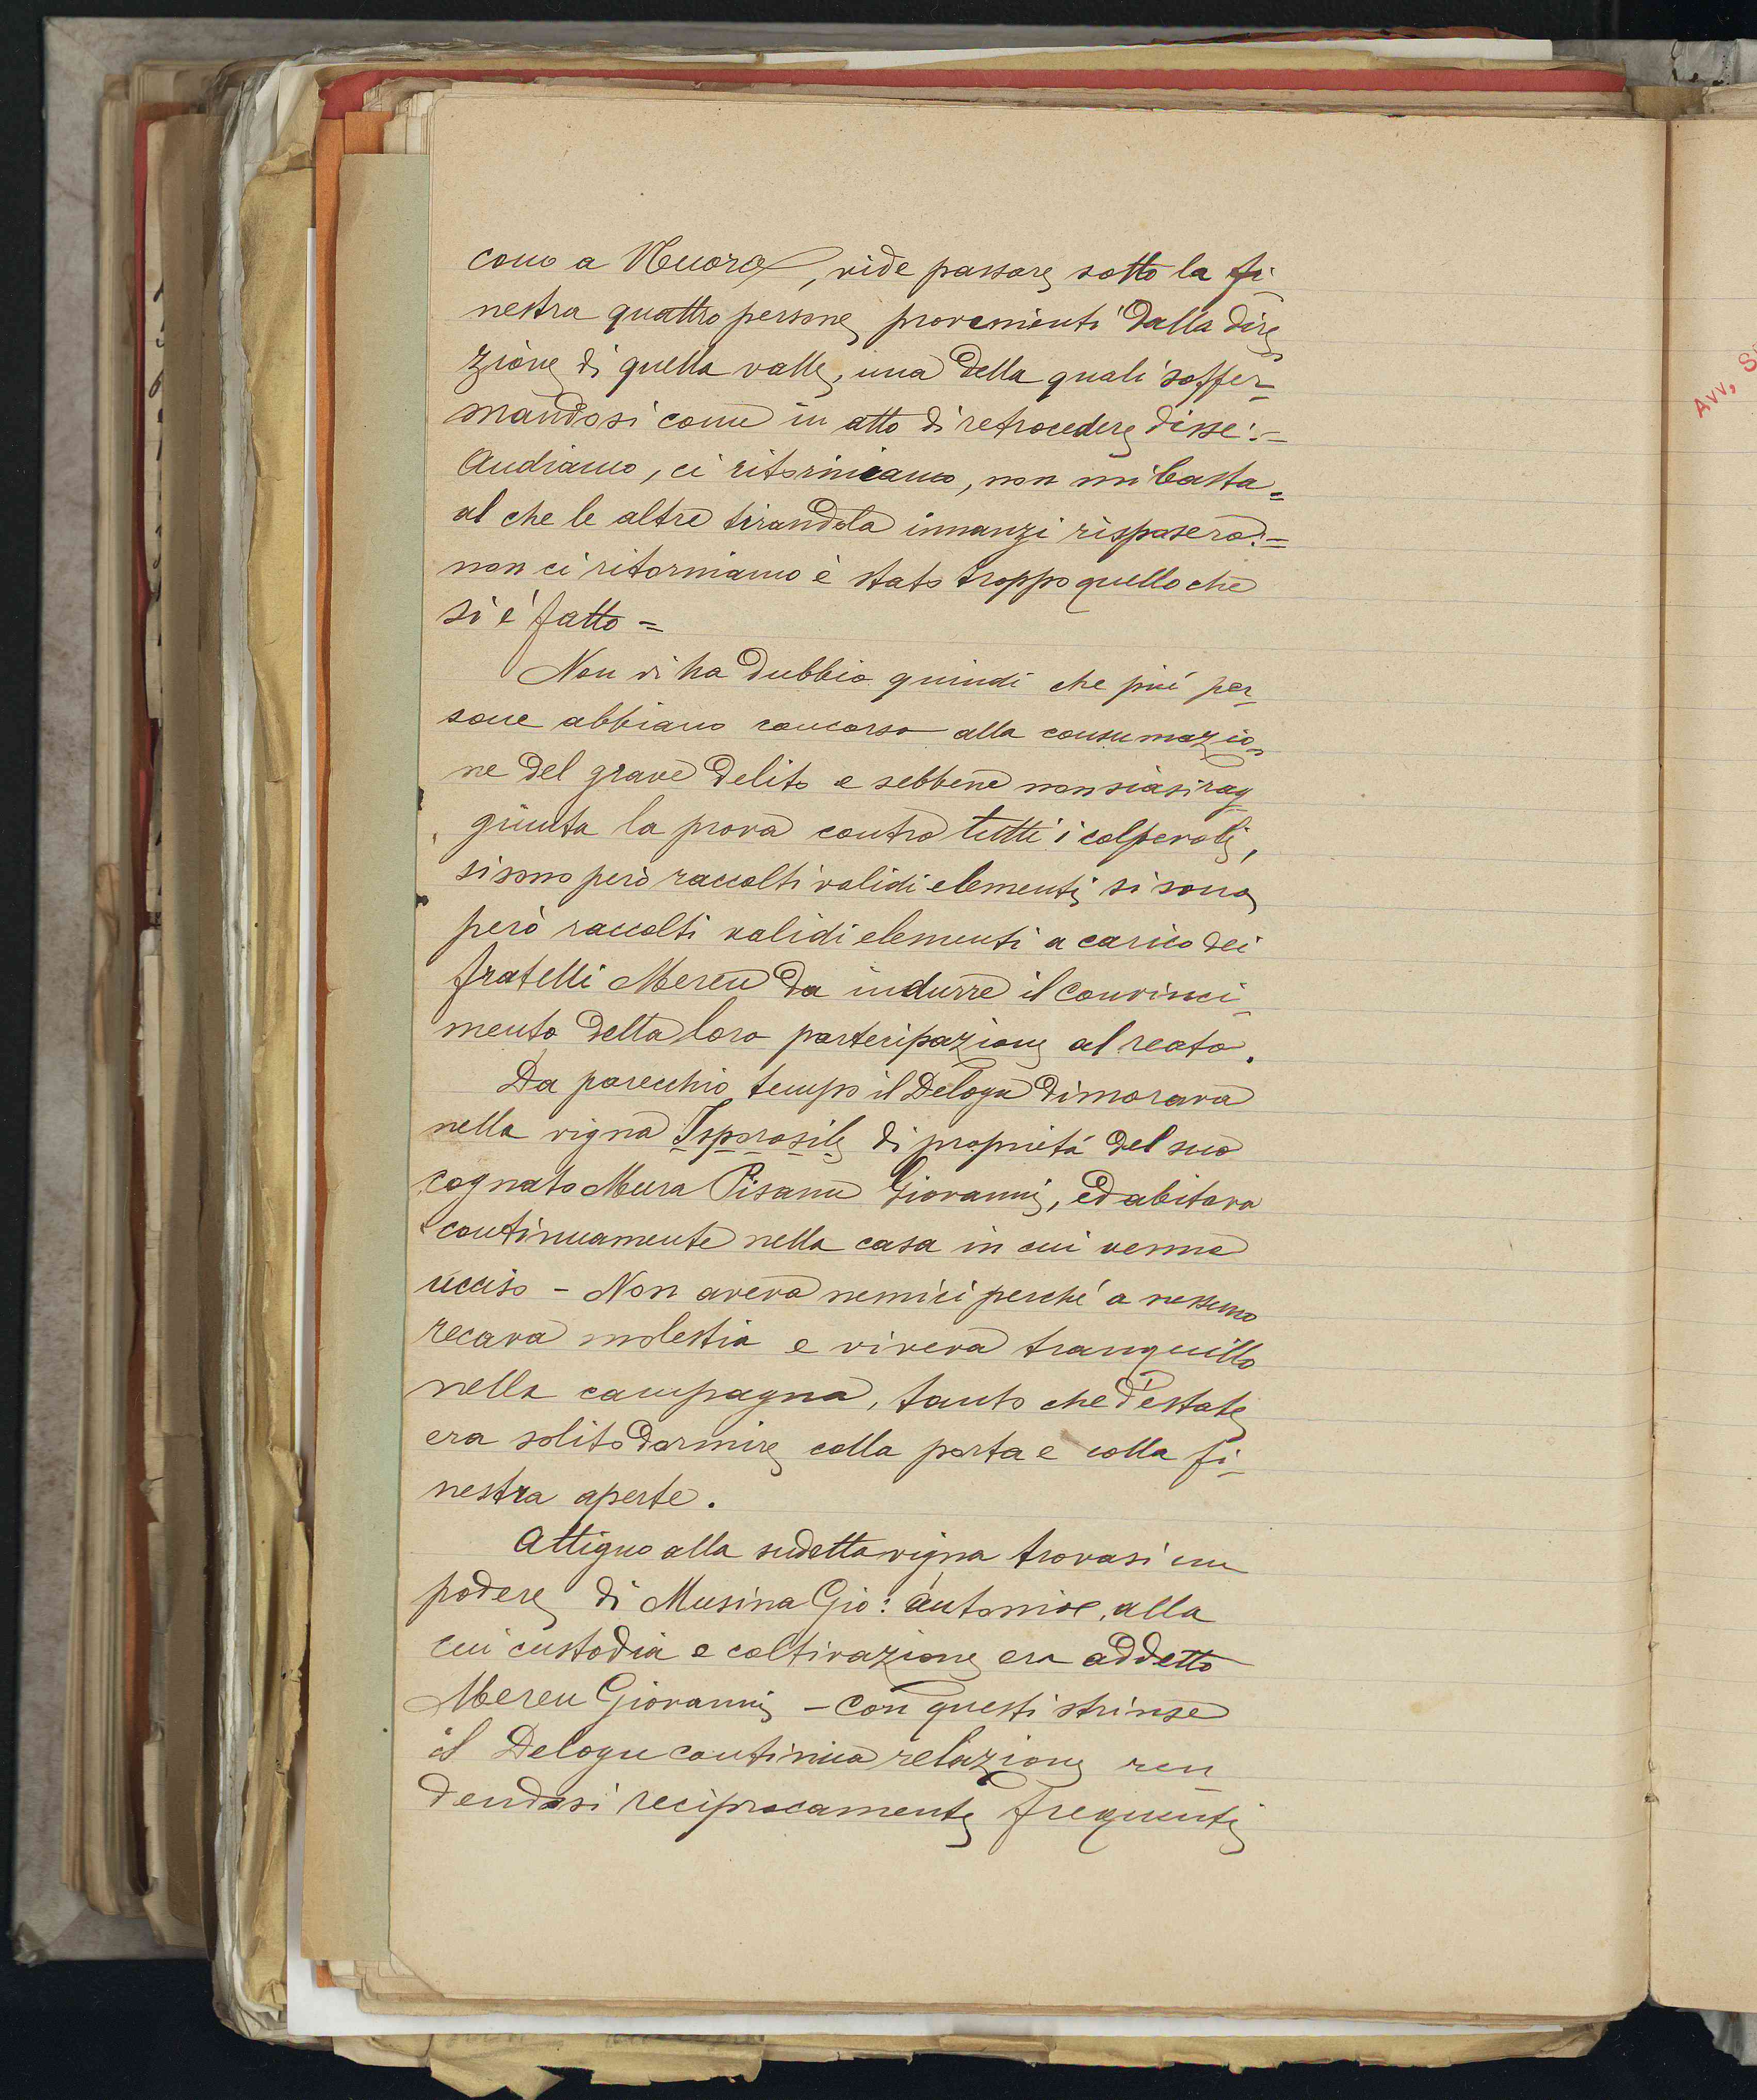 cono a Nuoro, vide passare sotto la fi-
nestra quattro persone provenienti dalla dire-
zione di quella valle, una della quali soffer-
mandosi come in atto di retrocedere disse: =
Andiamo, ci ritorniamo, non mi basta =
al che le altre tirandola innanzi risposero: =
non ci ritorniamo è stato troppo quello che
si è fatto =
Non vi ha dubbio quindi che più per-
sone abbiano concorso alla consumazio-
ne del grave delito e sebbene non siasi rag-
giunta la prova contro tutti i colpevoli,
si sono però raccolti validi elementi si sono
però raccolti validi elementi a carico dei
fratelli Mereu da indurre il convinci-
mento della loro partecipazione al reato.
Da parecchio tempo il Delogu dimorava
nella vigna Isporosile di proprietà del suo
cognato Mura Pisanu Giovanni, ed abitava
continuamente nella casa in cui venne
ucciso - Non aveva nemici perché a nessuno
recava molestia e viveva tranquillo
nella campagna, tanto che d'estate
era solito dormire colla porta e colla fi-
nestra aperte.
Attiguo alla sudetta vigna trovasi un
podere di Musina Gio: Antonio, alla
cui custodia e coltivazione era addetto
Mereu Giovanni - Con questi strinse
il Delogu continua relazione ren-
dendosi reciprocamente frequenti
Avv. S